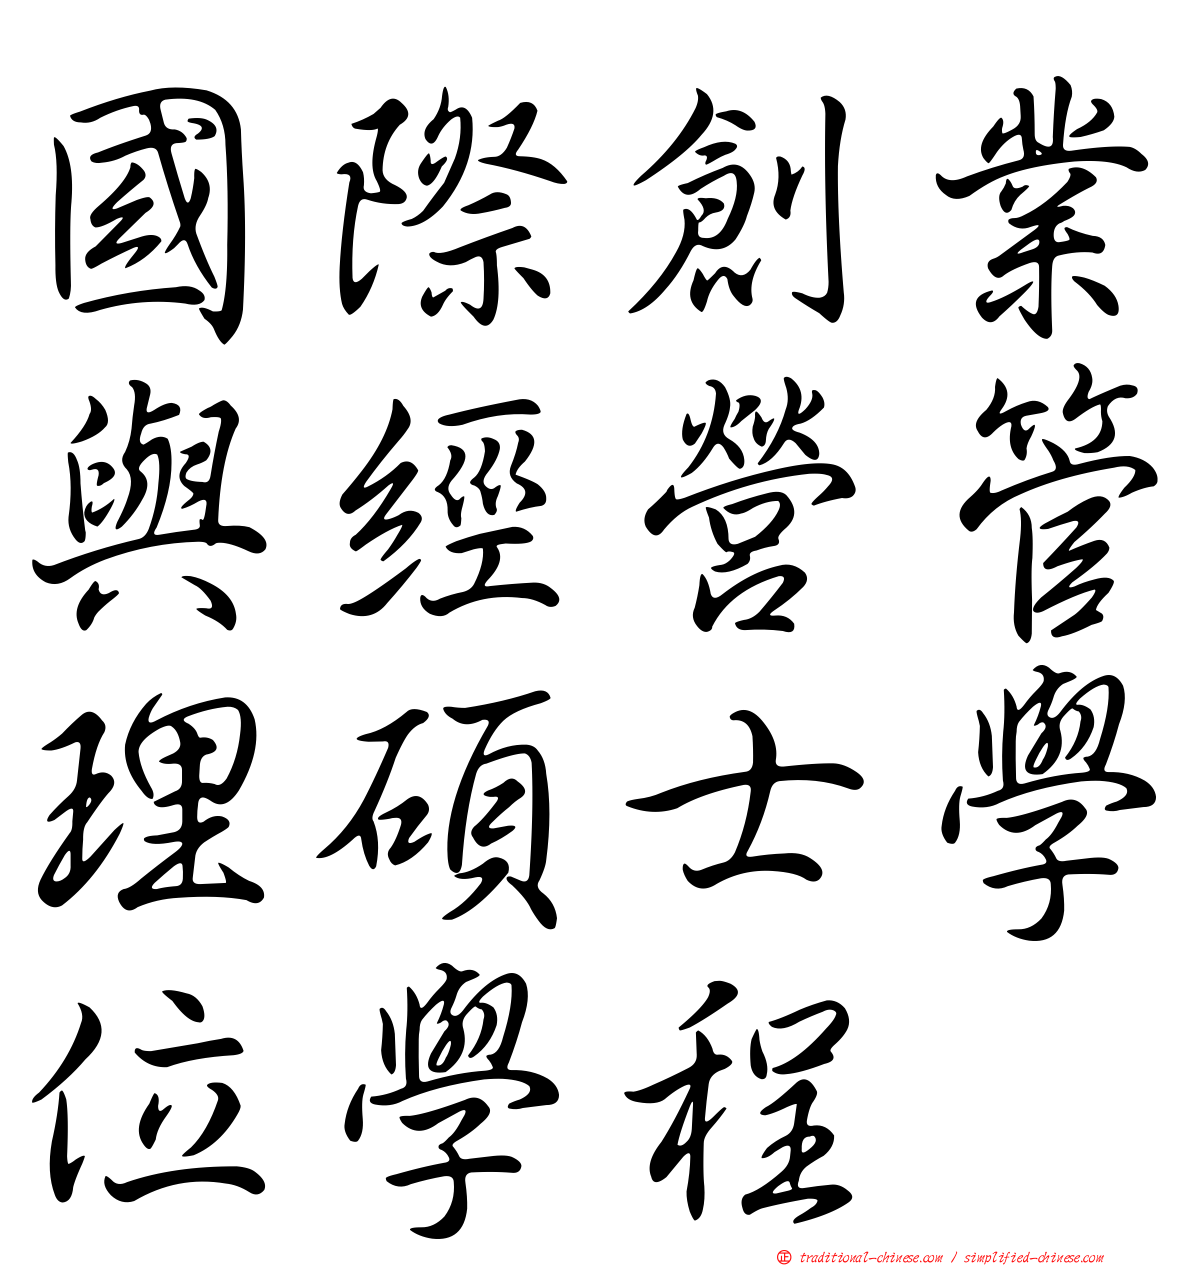 國際創業
與經營管
理碩士學
位學程
正 traditional-chinese.com / simplified-chinese.com